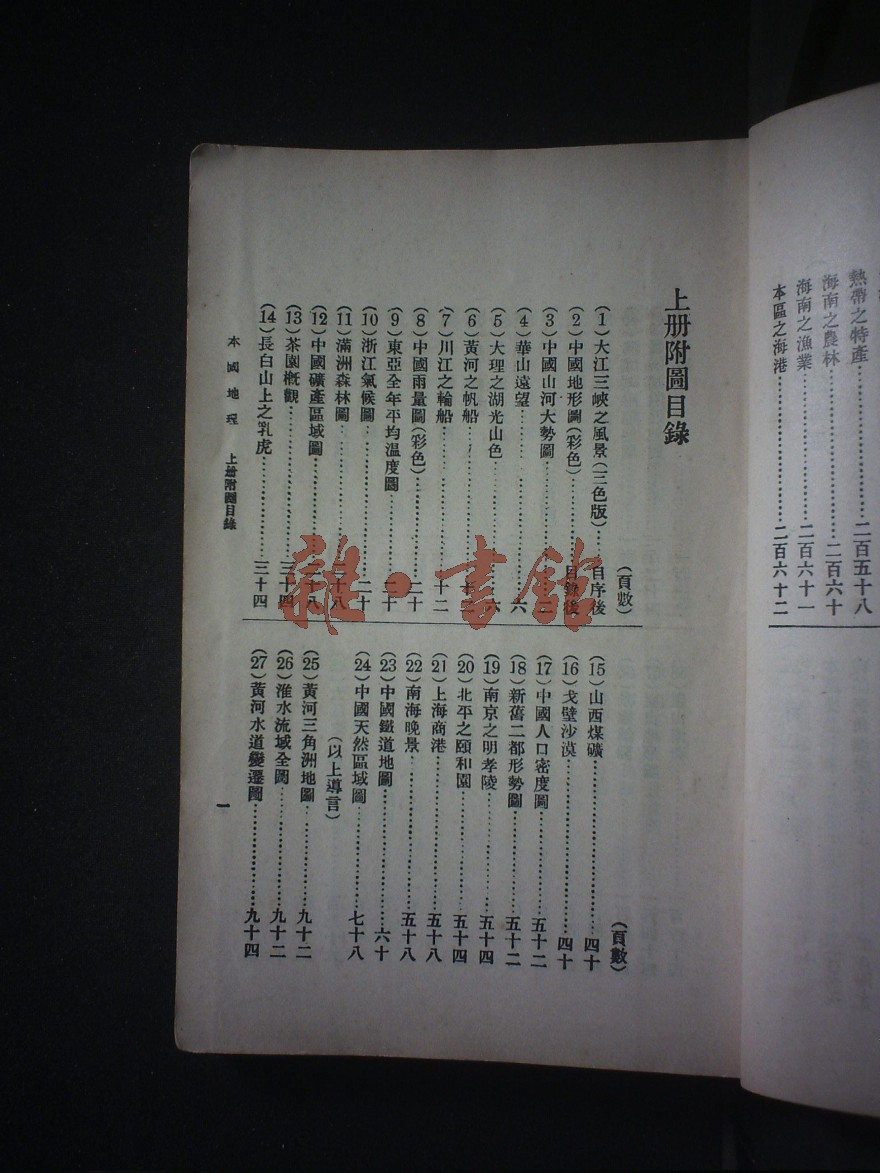 熱帶之特產……二百五十八
海南之農林……二百六十
海南之漁業……二百六十一
本區之海港……二百六十二
上册附圖目錄
(頁數)
(1)大江三峽之風景(三色版)…自序後
(2)中國地形圖(彩色)……目錄後
(3)中國山河大勢圖……
(4)華山遠望……六
(5)大理之湖光山色……六
(6)黃河之帆船……十二
(7)川江之輪船……十二
(8)中國雨量圖(彩色)……二十
(9)東亞全年平均溫度圖……二十
(10)浙江氣候圖……二十
(11)滿洲森林圖……二十八
(12)中國礦產區域圖……二十八
(13)茶園概觀……三十四
(14)長白山上之乳虎……三十四
(頁數)
(15)山西煤礦……四十
(16)戈壁沙漠……四十
(17)中國人口密度圖……五十二
(18)新舊二都形勢圖……五十二
(19)南京之明孝陵……五十四
(20)北平之頤和園……五十四
(21)上海商港……五十八
(22)南海晚景……五十八
(23)中國鐵道地圖……六十
(24)中國天然區域圖……七十八
(以上導言)
(25)黃河三角洲地圖……九十二
(26)淮水流域全圖……九十二
(27)黃河水道變遷圖……九十四
本國地理 上册附圖目錄
一
雜·書館